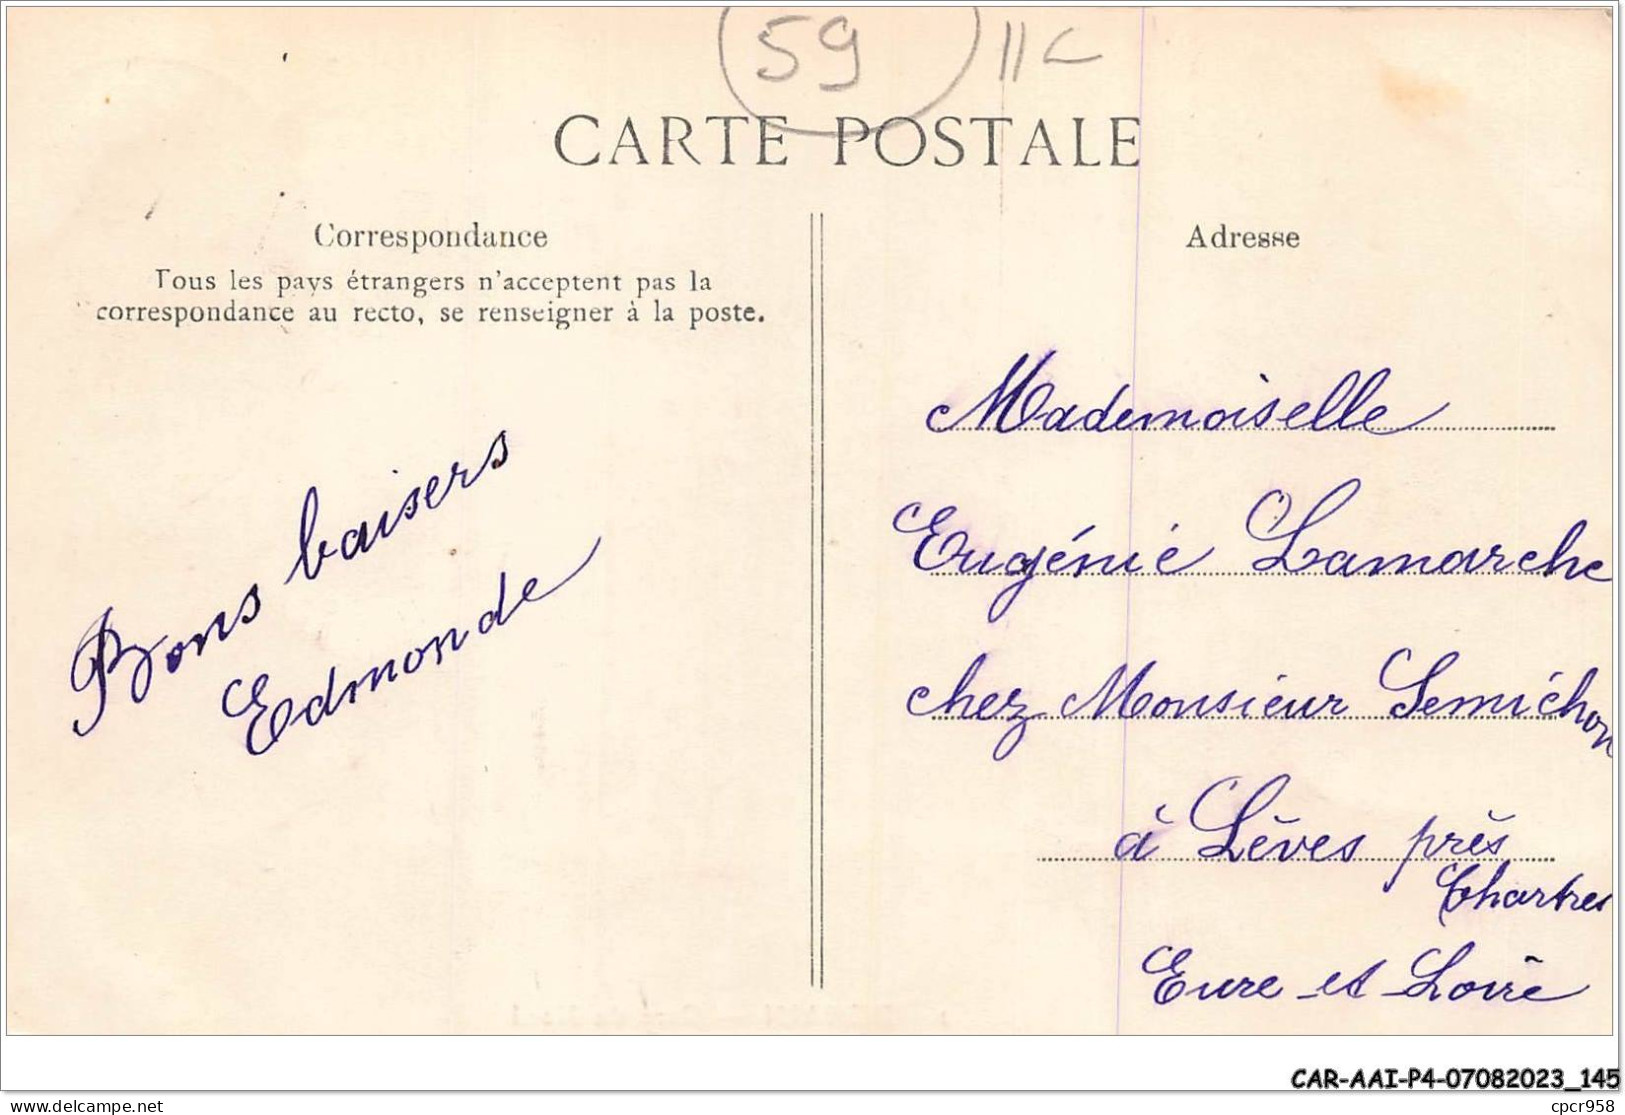 59 11C
CARTE POSTALE
Correspondance
Tous les pays étrangers n'acceptent pas la
correspondance au recto, se renseigner à la poste.
Bons baisers
Edmonde
Adresse
Mademoiselle
Eugénie Lamarche
chez Monsieur Semichon
à Lèves près
Chartres
Eure-et-Loire
CAR-AAI-P4-07082023_145
delcampe.net
cpcr958